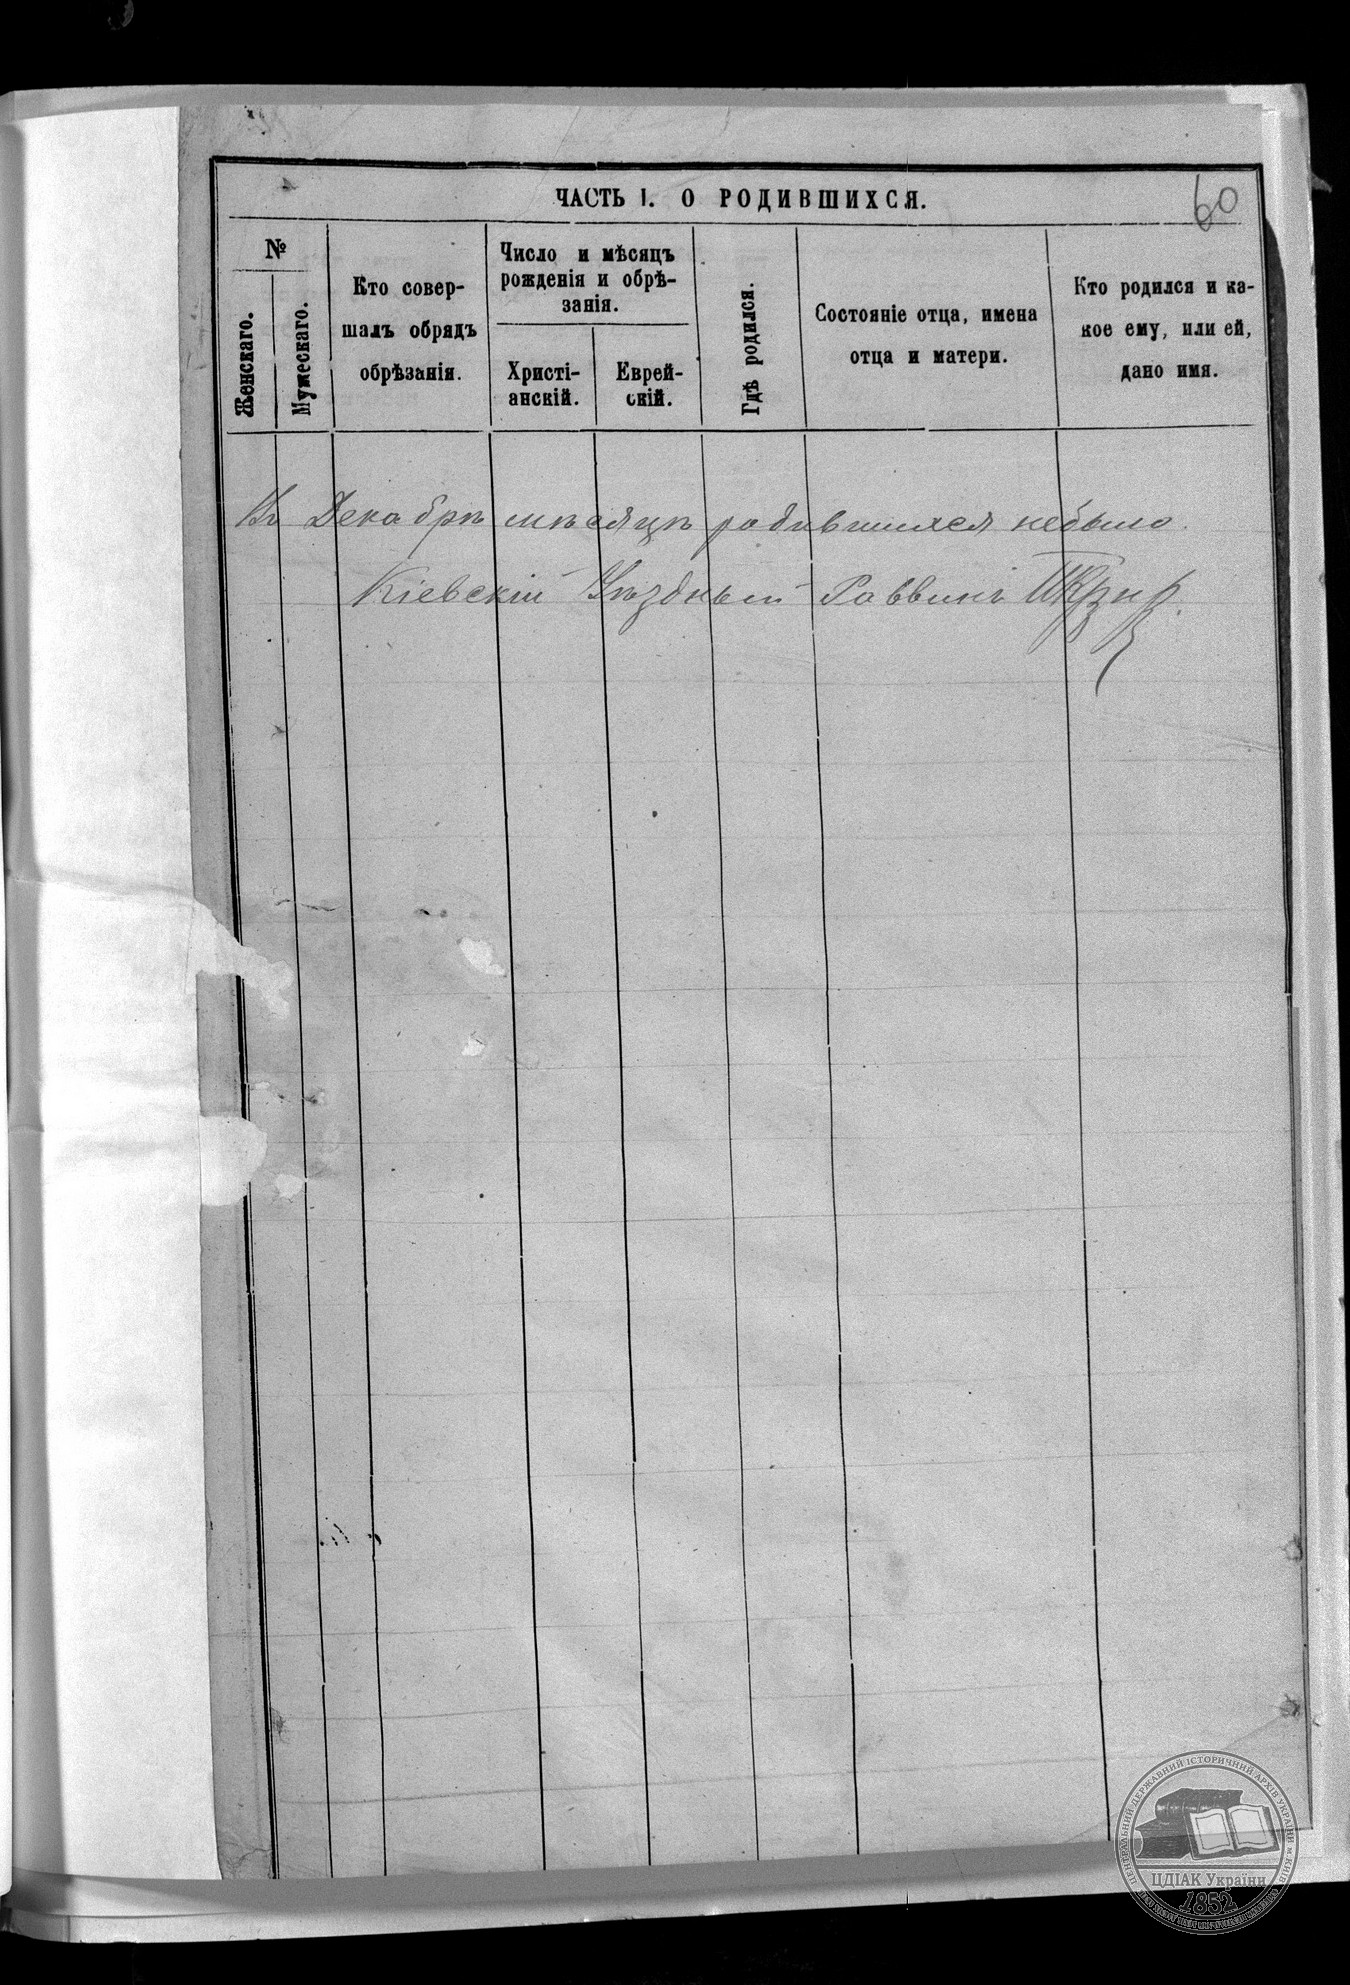 60
ЧАСТЬ I. О РОДИВШИХСЯ.
№
Женскаго.
Мужескаго.
Кто совер-
шалъ обрядъ
обрѣзанія.
Число и мѣсяцъ
рожденія и обрѣ-
занія.
Христі-
анскій.
Еврей-
скій.
Гдѣ родился.
Состояніе отца, имена
отца и матери.
Кто родился и ка-
кое ему, или ей,
дано имя.
Въ Декабрѣ мѣсяцѣ родившихся небыло.
Кіевскій Уѣздный Раввинъ
ЦЕНТРАЛЬНИЙ ДЕРЖАВНИЙ ІСТОРИЧНИЙ АРХІВ УКРАЇНИ м.КИЇВ
ЦДІАК України
1852